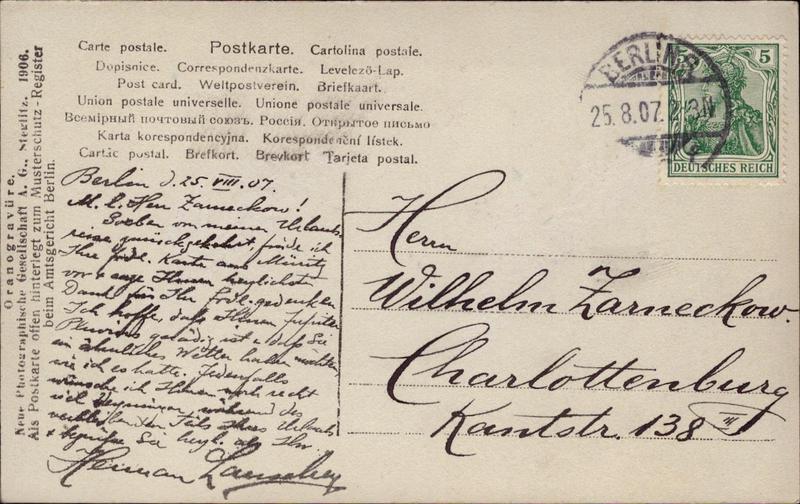 Carte postale. Postkarte. Cartolina postale.
Dopisnice. Correspondenzkarte. Levelező-Lap.
Post card. Weltpostverein. Briefkaart.
Union postale universelle. Unione postale universale.
Всемірный почтовый союзъ. Россія. Открытое письмо
Karta korespondencyjna. Korespondenční lístek.
Cartăc postal. Brefkort. Brevkort Tarjeta postal.
Oranogravüre.
Neue Photographische Gesellschaft A. G., Steglitz. 1906.
Als Postkarte offen hinterlegt zum Musterschutz-Register
beim Amtsgericht Berlin.
BERLIN
25.8.07.
5
DEUTSCHES REICH
Berlin d. 25. VIII. 07.
M. l. Herr Zarneckow!
Soeben von meiner Urlaubs
reise zurückgekehrt, finde ich
Ihre frdl. Karte aus Müritz
vor & sage Ihnen herzlichsten
Dank für Ihr frdl. gedenken
Ich hoffe, daß Ihnen Jupiter
Pluvius gnädig ist & daß Sie
ein ähnliches Wetter haben möchten
wie ich es hatte. Jedenfalls
wünsche ich Ihnen noch recht
viel Vergnügen während des
verbleibenden Teils Ihres Urlaubs
& begrüße Sie herzl. als Ihr
Herman
Herrn
Wilhelm Zarneckow.
Charlottenburg
Kantstr. 138 III